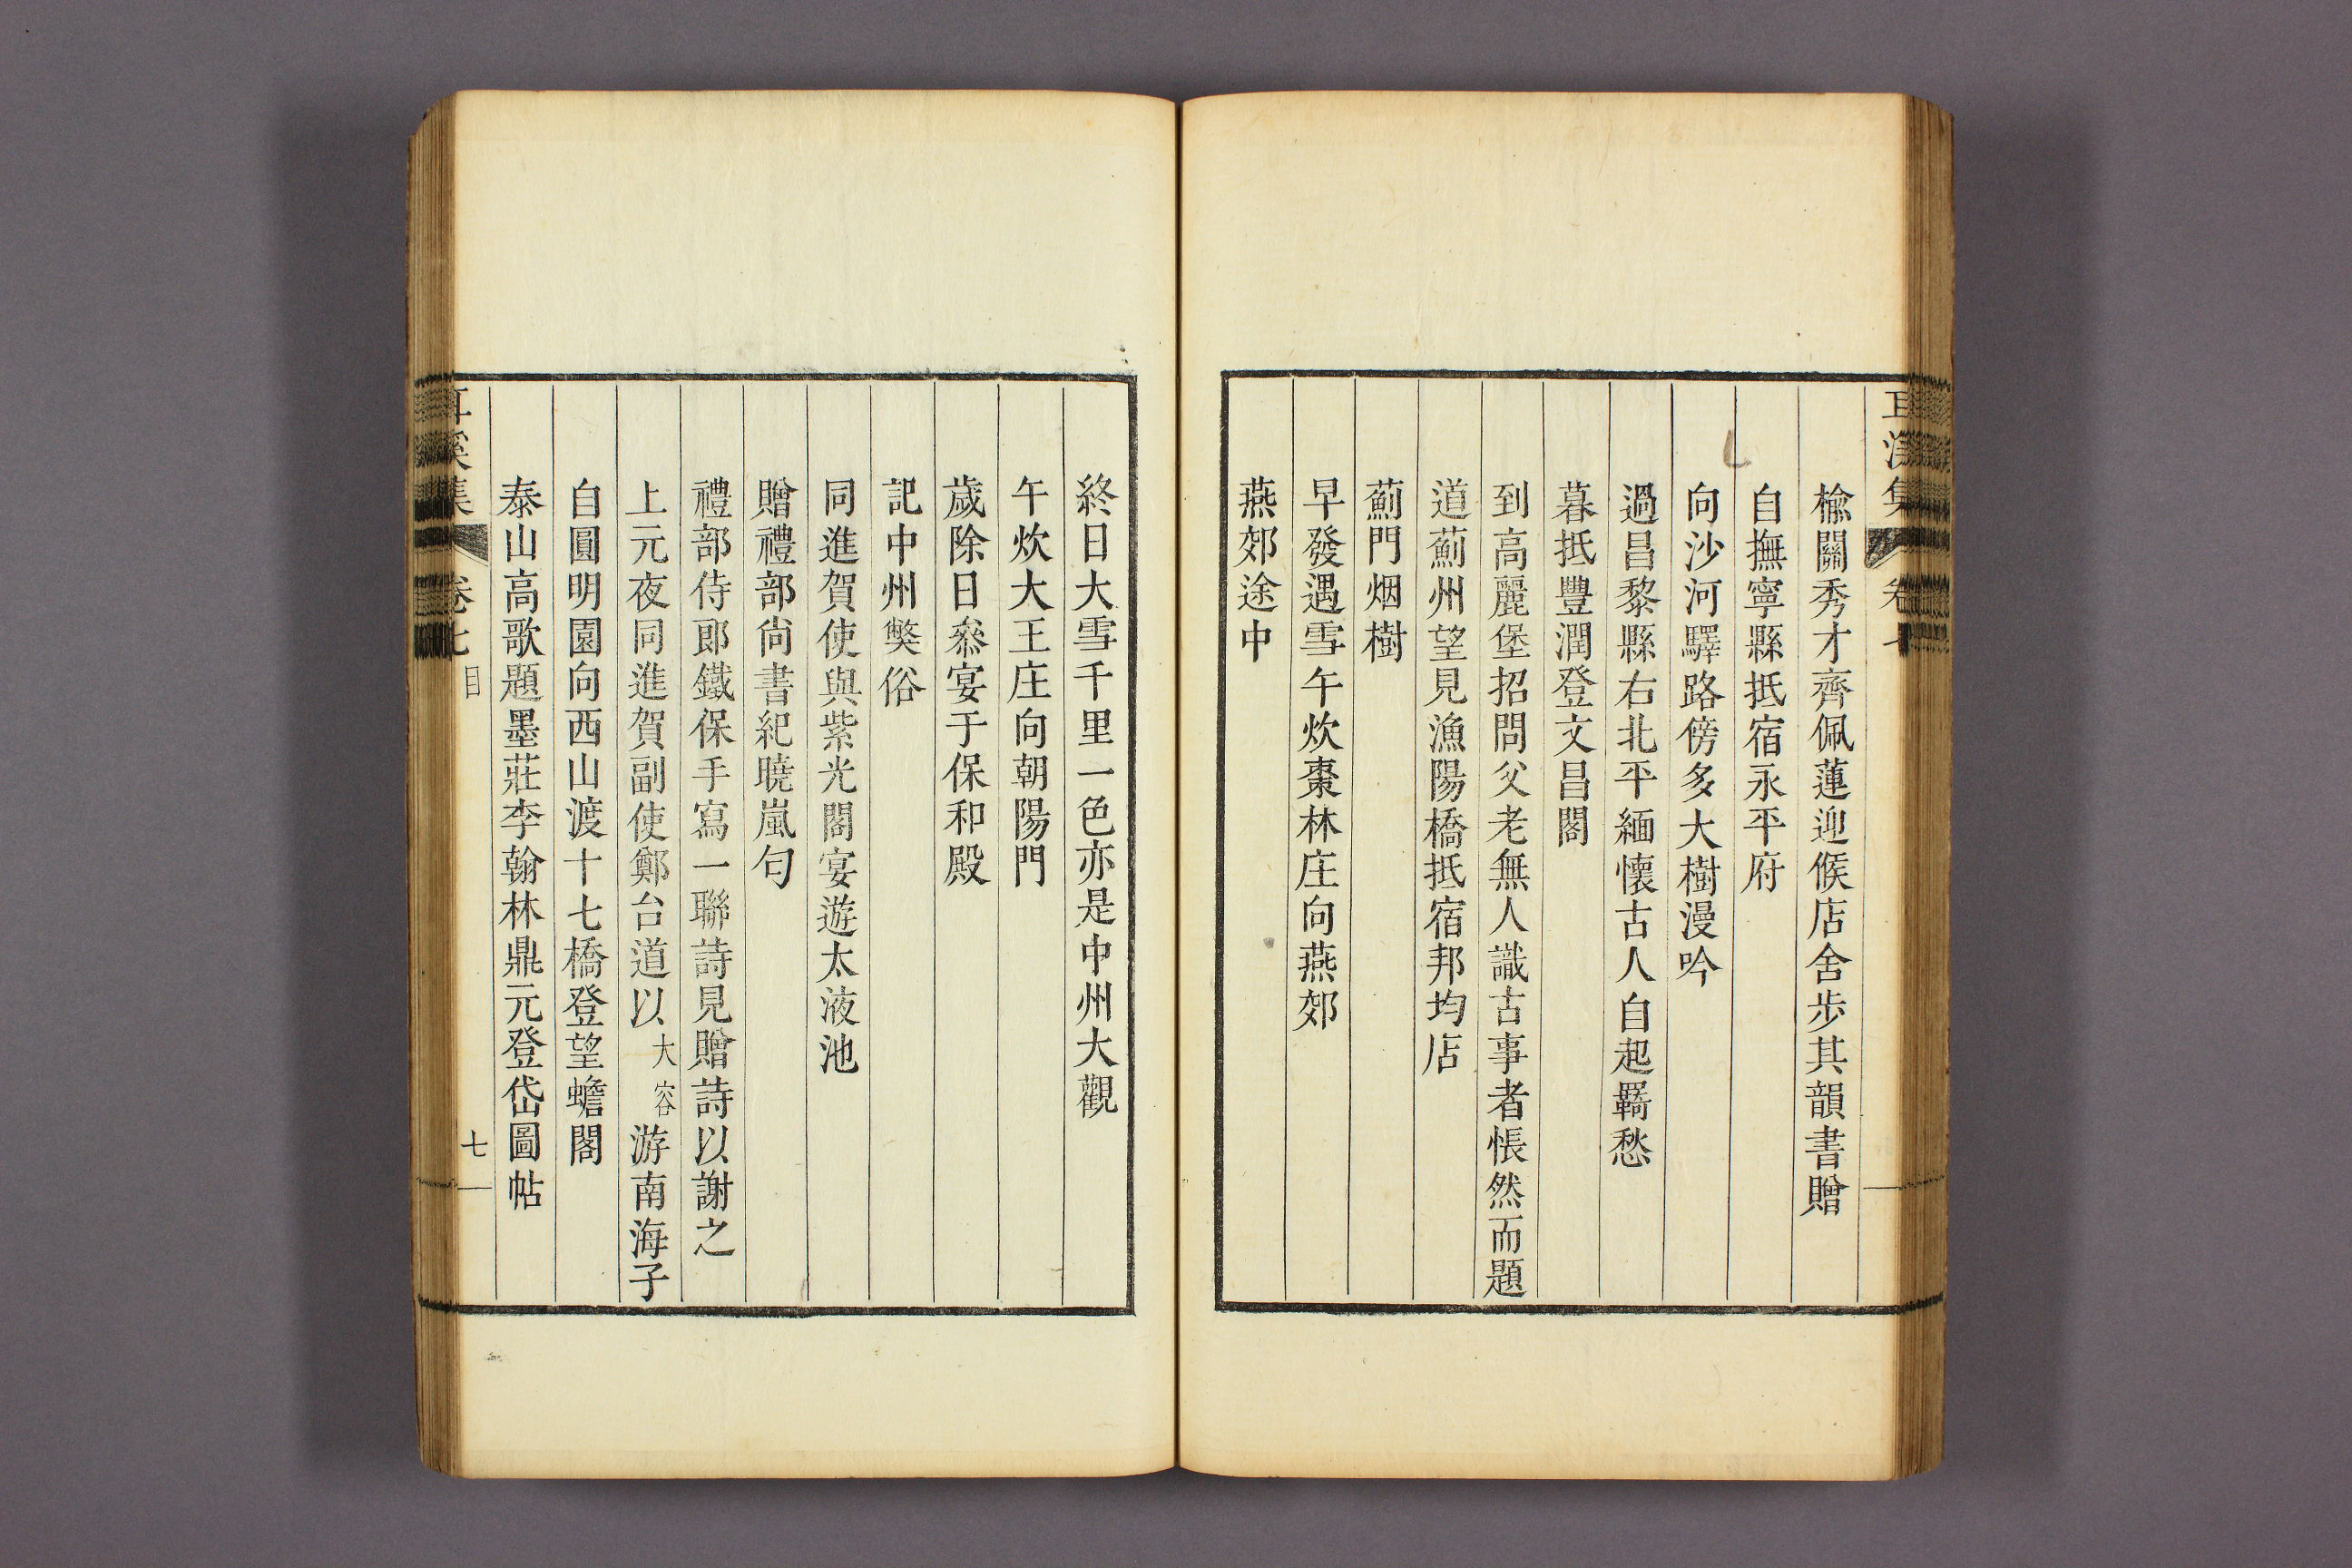 楡關秀才齊佩蓮迎候店舍步其韻書贈
自撫寧縣抵宿永平府
向沙河驛路傍多大樹漫吟
過昌黎縣右北平緬懷古人自起羈愁
暮抵豐潤登文昌閣
到高麗堡招問父老無人識古事者悵然而題
道薊州望見漁陽橋抵宿邦均店
薊門烟樹
早發遇雪午炊棗林庄向燕郊
燕郊途中
終日大雪千里一色亦是中州大觀
午炊大王庄向朝陽門
歲除日叅宴于保和殿
記中州獘俗
同進賀使與紫光閣宴遊太液池
贈禮部尙書紀曉嵐匀
禮部侍郎鐵保手寫一聯詩見贈詩以謝之
上元夜同進賀副使鄭台道以大容游南海子
自圓明園向西山渡十七橋登望蟾閣
泰山高歌題墨莊李翰林鼎元登岱圖帖
耳溪集 卷七 目 七